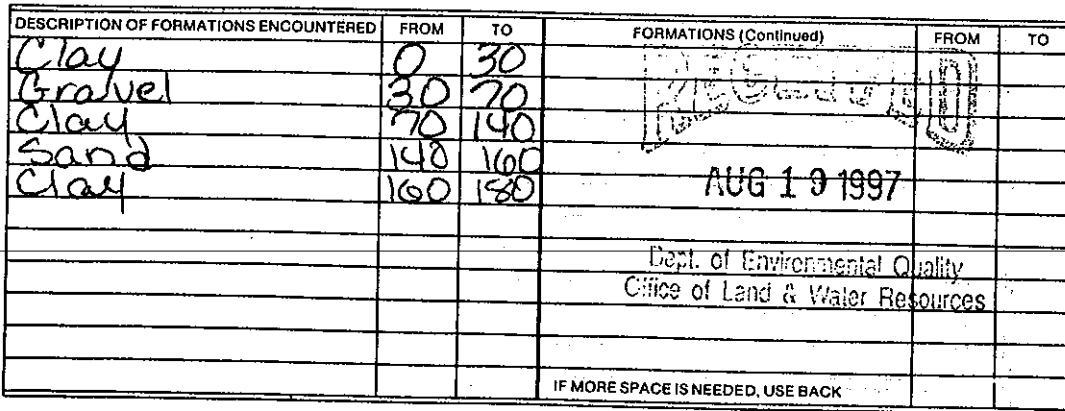 DESCRIPTION OF FORMATIONS ENCOUNTERED FROM TO FORMATIONS (Continued) FROM TO
Clay 0 30
Gravel 30 70
Clay 70 140
Sand 140 160
Clay 160 180
RECEIVED
AUG 19 1997
Dept. of Environmental Quality
Office of Land & Water Resources
IF MORE SPACE IS NEEDED, USE BACK